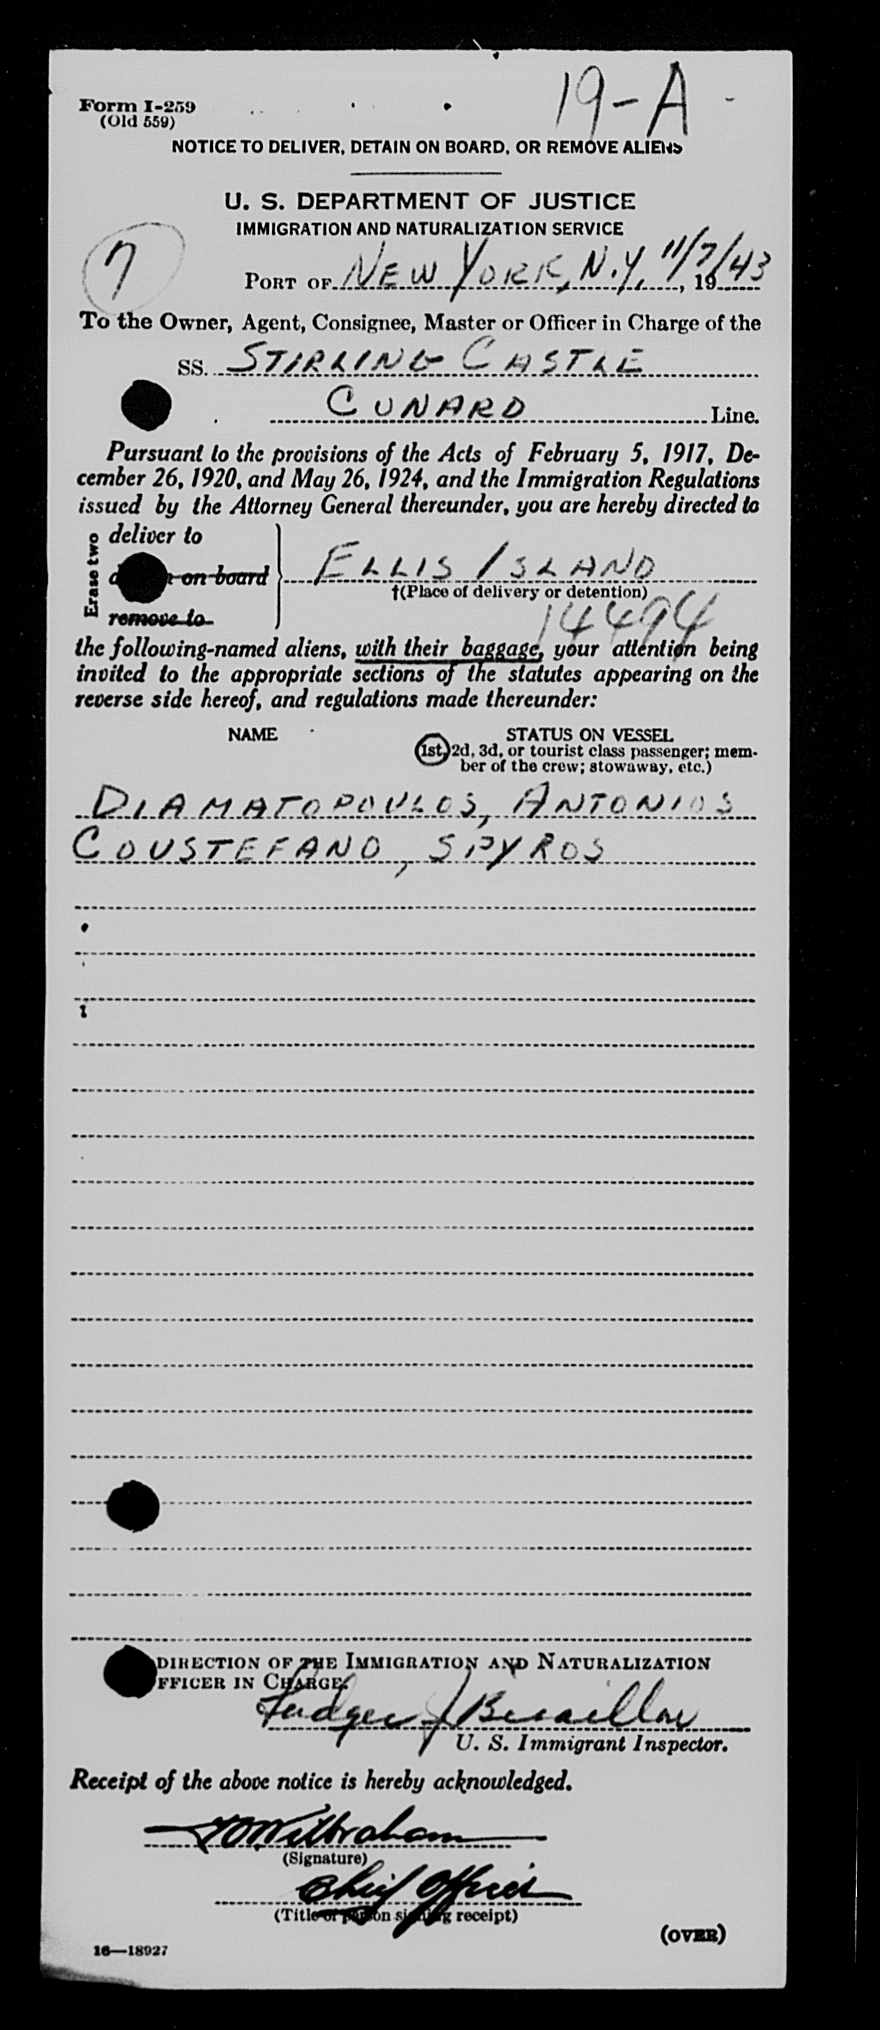 19-A
Form I-259
(Old 559)
NOTICE TO DELIVER, DETAIN ON BOARD, OR REMOVE ALIENS
U. S. DEPARTMENT OF JUSTICE
IMMIGRATION AND NATURALIZATION SERVICE
7
PORT OF NEW YORK, N.Y. 11/7/43, 19
To the Owner, Agent, Consignee, Master or Officer in Charge of the
SS. STIRLING CASTLE
CUNARD Line.
Pursuant to the provisions of the Acts of February 5, 1917, De-
cember 26, 1920, and May 26, 1924, and the Immigration Regulations
issued by the Attorney General thereunder, you are hereby directed to
Erase two
deliver to
on board
remove to
ELLIS ISLAND
†(Place of delivery or detention)
14494
the following-named aliens, with their baggage, your attention being
invited to the appropriate sections of the statutes appearing on the
reverse side hereof, and regulations made thereunder:
NAME STATUS ON VESSEL
(1st, 2d, 3d, or tourist class passenger; mem-
ber of the crew; stowaway, etc.)
DIAMATOPOULOS, ANTONIOS
COUSTEFANO, SPYROS
DIRECTION OF THE IMMIGRATION AND NATURALIZATION
FFICER IN CHARGE.
U. S. Immigrant Inspector.
Receipt of the above notice is hereby acknowledged.
Wilbraham
(Signature)
Chief Officer
(Title of person signing receipt)
(OVER)
16—18927